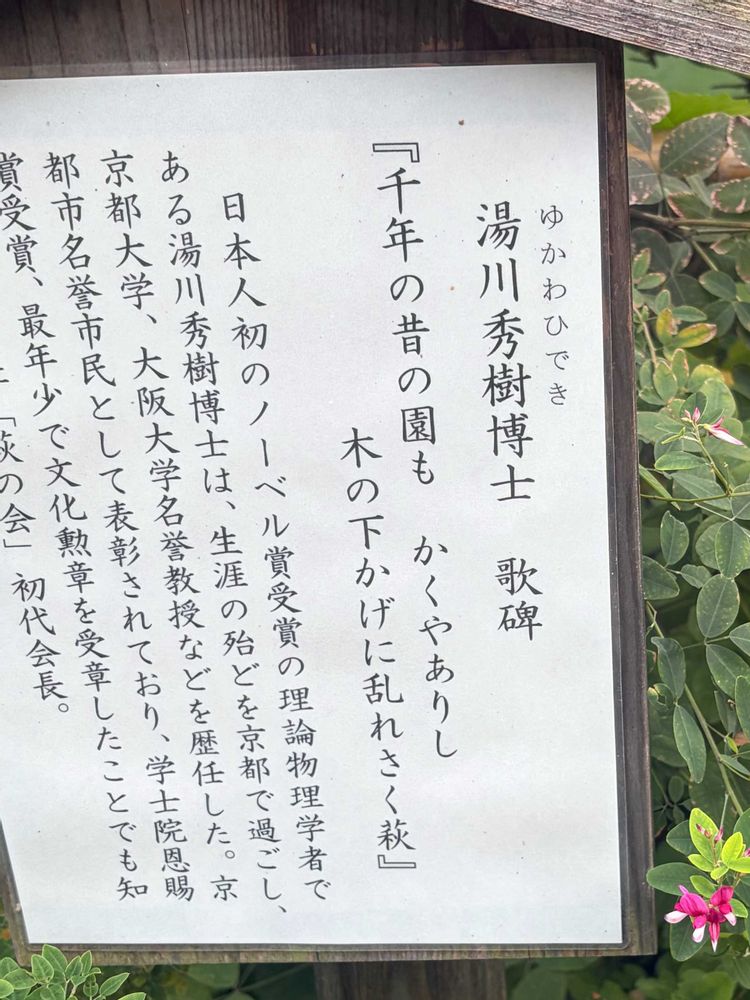 ゆかわひでき
湯川秀樹博士　歌碑
『千年の昔の園も　かくやありし
木の下かげに乱れさく萩』
日本人初のノーベル賞受賞の理論物理学者で
ある湯川秀樹博士は、生涯の殆どを京都で過ごし、
京都大学、大阪大学名誉教授などを歴任した。京
都市名誉市民として表彰されており、学士院恩賜
賞受賞、最年少で文化勲章を受章したことでも知
「萩の会」初代会長。